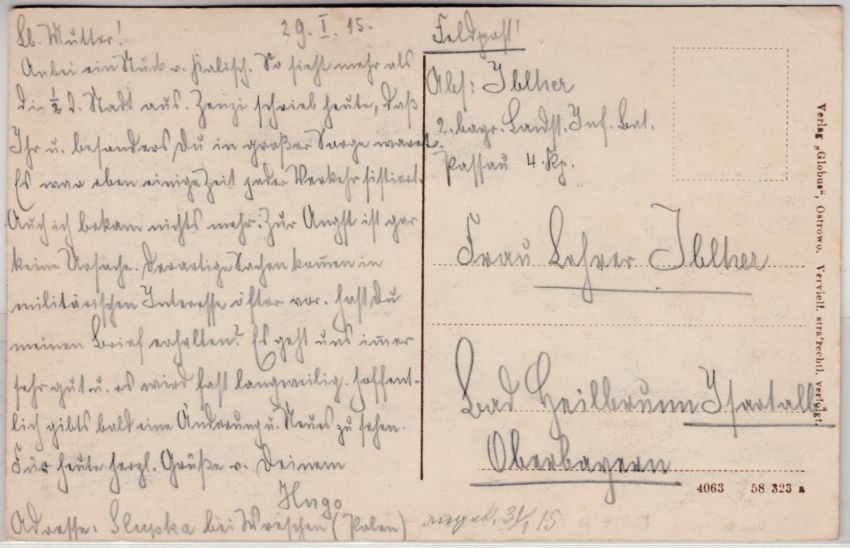 29. I. 15.
Lb. Mutter!
Anbei ein Stück v. Kalisch. So sieht mehr als
die ½ d. Stadt aus. Zenzi schrieb heute, daß
Ihr u. besonders Du in großer Sorge waret.
Es war eben einige Zeit jeder Verkehr sistiert.
Auch ich bekam nichts mehr. Zur Angst ist gar
keine Ursache. Derartige Sachen kom̅en in
militärischen Interesse öfter vor. Hast Du
meinen Brief erhalten? Es geht uns im̅er
sehr gut u. es wird fast langweilig. Hoffent-
lich gibts bald eine Änderung u. Neues zu sehen.
Für heute herzl. Grüße v. Deinem
Hugo
Adresse: Slupka bei Wreschen (Polen)
angek. 31/1 15
Feldpost!
Abs: Iblher
2. bayr. Landst. Inf. Bat.
Passau 4. Kp.
Frau Lehrer Iblher
Bad Heilbrunn Isartalb.
Oberbayern
Verlag „Globus“, Ostrowo. Vervielf. strafrechtl. verfolgt.
4063 58 323 a